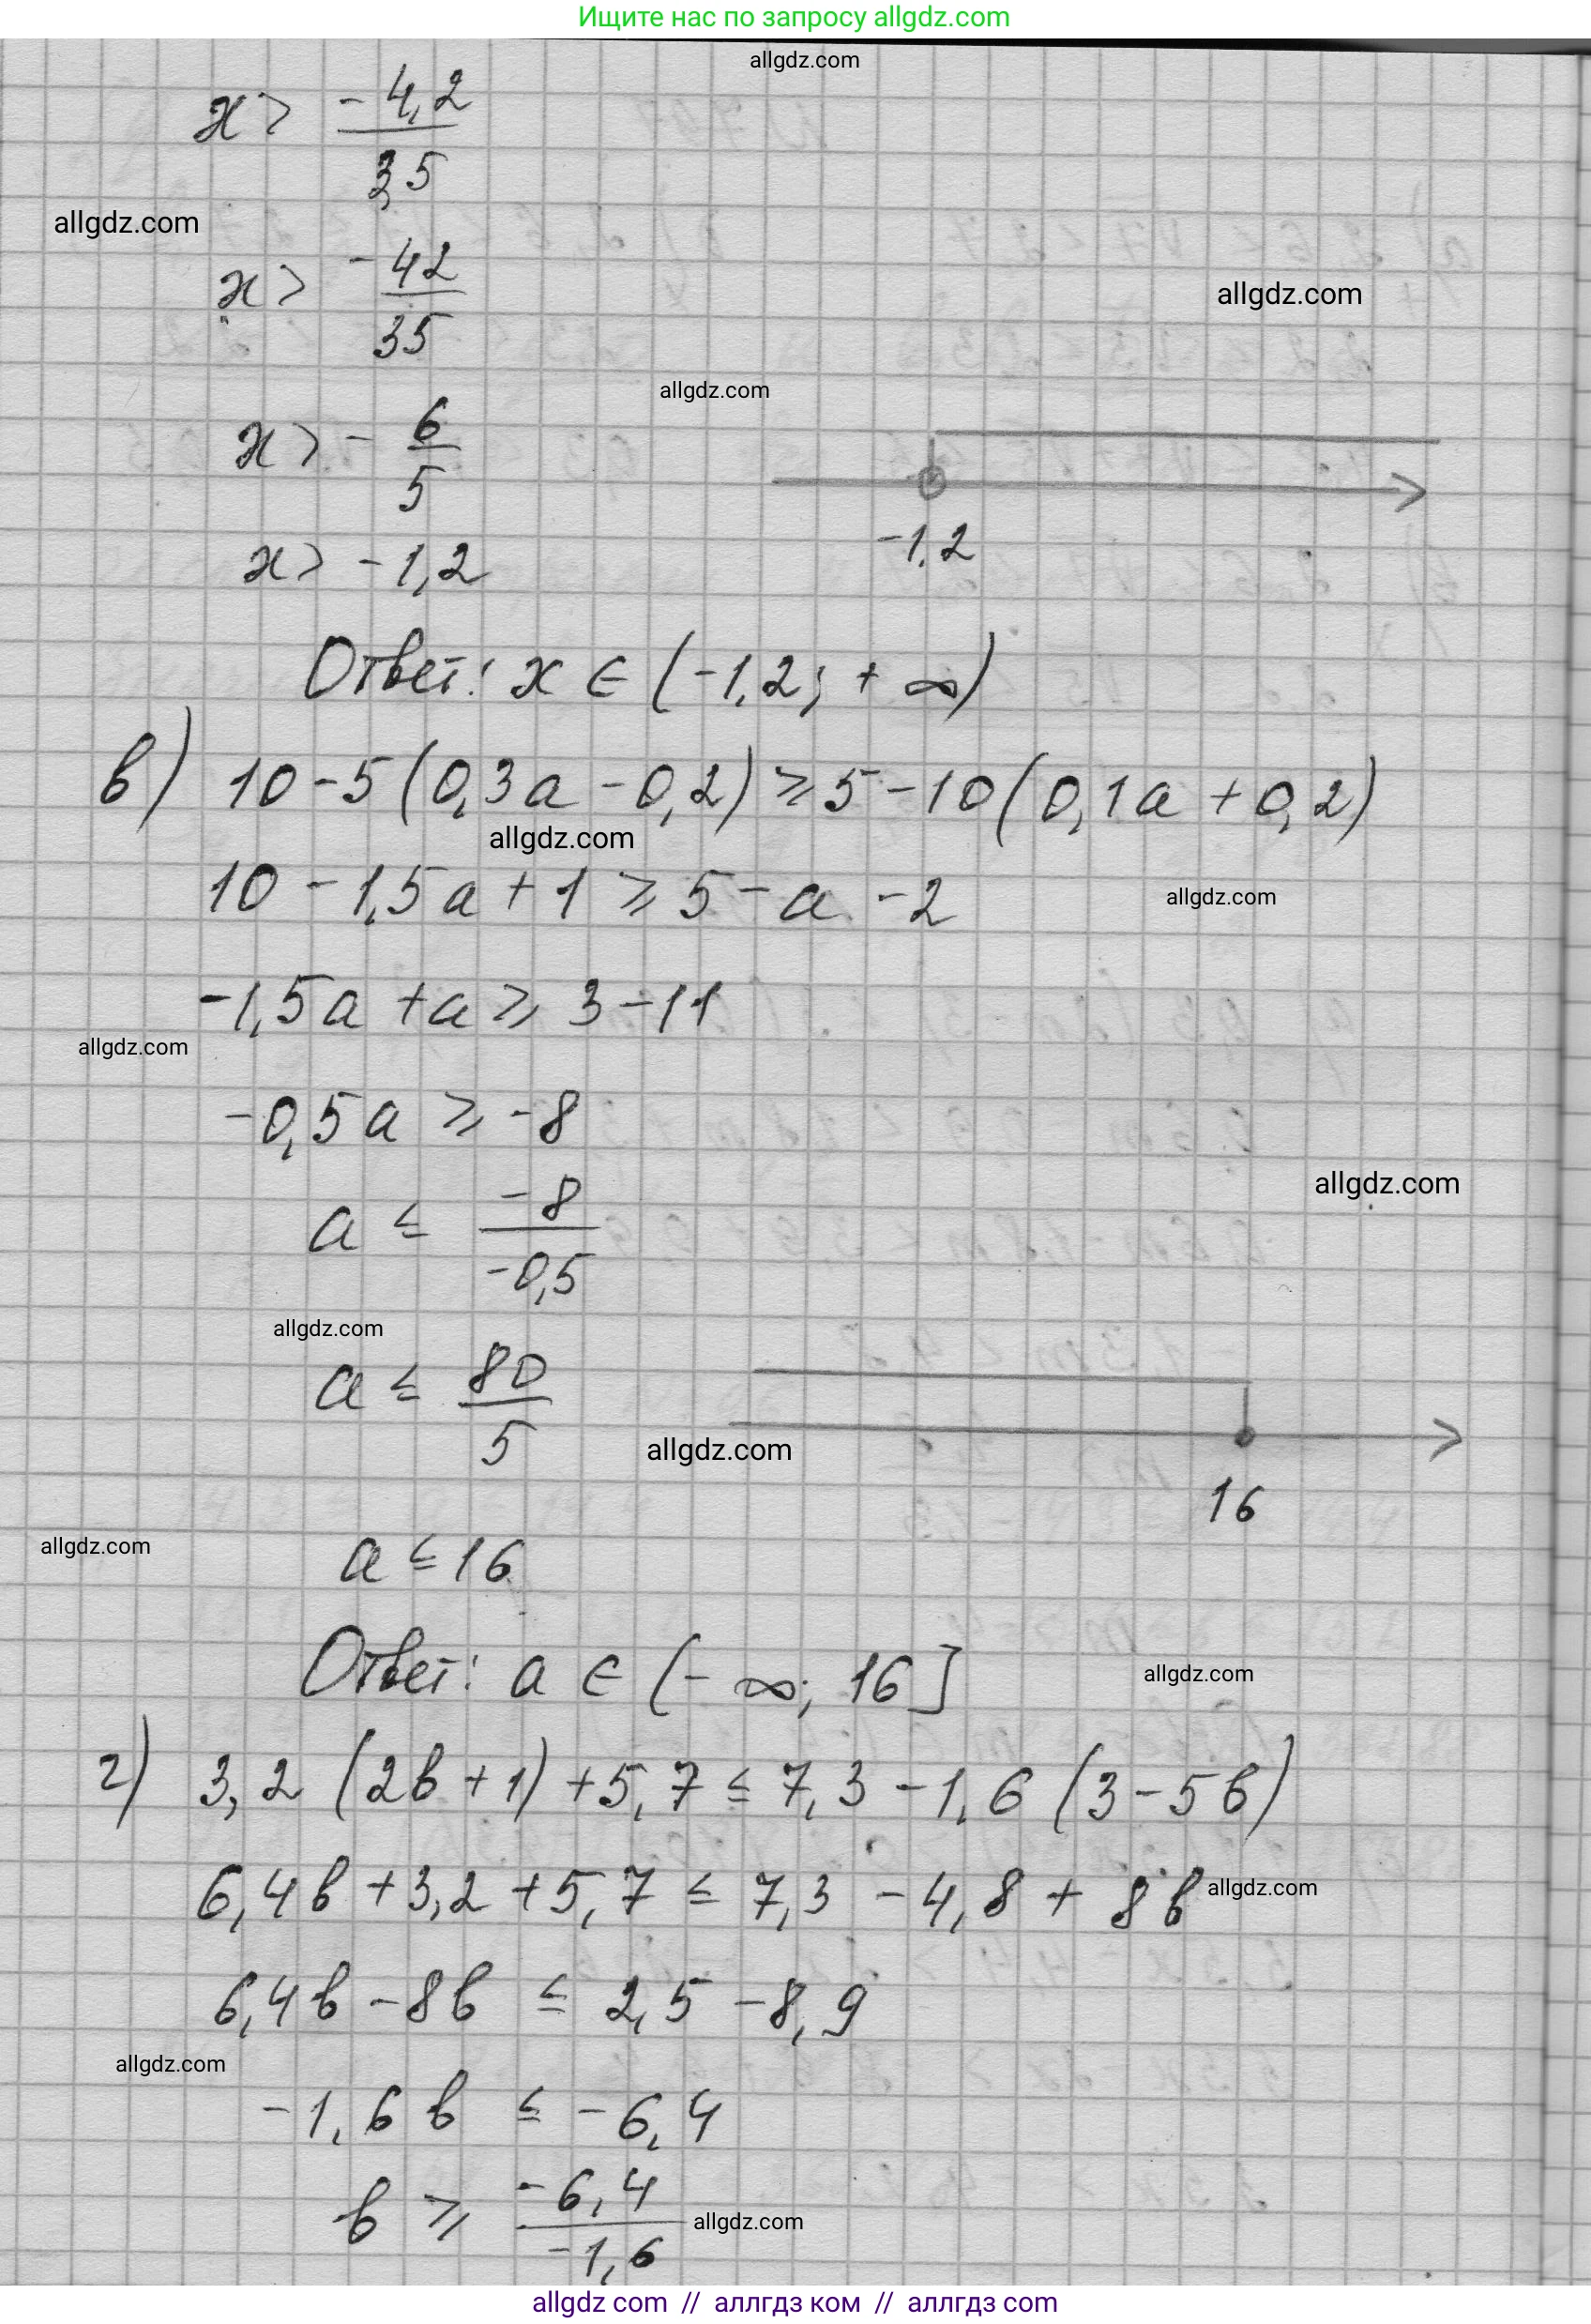 Ищите нас по запросу allgdz.com
allgdz.com
x > -4,2/3,5
allgdz.com
x > -42/35
allgdz.com
allgdz.com
x > -6/5
x > -1,2
-1,2
Ответ: x ∈ (-1,2; +∞)
в) 10-5(0,3a-0,2) ≥ 5-10(0,1a+0,2)
allgdz.com
10-1,5a+1 ≥ 5-a-2
allgdz.com
-1,5a+a ≥ 3-11
allgdz.com
-0,5a ≥ -8
allgdz.com
a ≤ -8/-0,5
allgdz.com
a ≤ 80/5
allgdz.com
16
allgdz.com
a ≤ 16
Ответ: a ∈ (-∞; 16]
allgdz.com
г) 3,2(2в+1)+5,7 ≤ 7,3-1,6(3-5в)
6,4в+3,2+5,7 ≤ 7,3-4,8+8в
allgdz.com
6,4в-8в ≤ 2,5-8,9
allgdz.com
-1,6в ≤ -6,4
в ≥ -6,4/-1,6
allgdz.com
allgdz com // аллгдз ком // аллгдз com